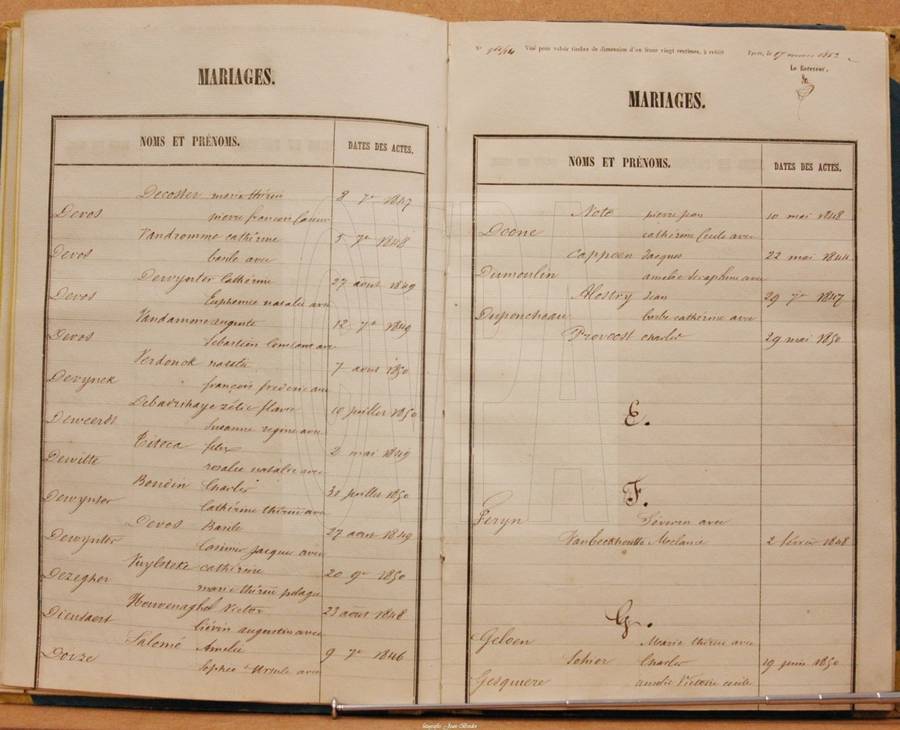 MARIAGES.
NOMS ET PRÉNOMS. DATES DES ACTES.
Decoster marie thérèse 8 7re 1847
Devos pierre françois
Vandromme cathérine 5 7re 1848
Devos basile avec
Dewynter Cathérine 27 août 1849
Devos Euphemie natalie avec
Vandamme auguste 12 7re 1849
Devos Sebastien Constant avec
Verdonck natalie 7 août 1850
Devynck françois frédéric avec
Debadrihaye zélie flavie 10 juillet 1850
Deweerdt Susanne regine avec
Titeca felix 2 mai 1849
Dewitte rosalie natalie avec
Boudin Charles 31 juillet 1850
Dewynter Cathérine thérèse avec
Devos Basile 27 août 1849
Dewynter Casimir jacques avec
Vuylsteke cathérine 20 9re 1850
Dezegher marie thérèse pelagie
Houvenaghel Victor 23 août 1848
Dieusaert liévin augustin avec
Salomé Amelie 9 7re 1846
Dorze Sophie Ursule avec
Visé pour valoir timbre de dimension d'un franc vingt centimes, à crédit Ypres, le 17 1852
Le Receveur,
MARIAGES.
NOMS ET PRÉNOMS. DATES DES ACTES.
Note pierre jean 10 mai 1848
Doone cathérine Cecile avec
Cappoen Jacques 22 mai 1844
Dumoulin amelie Seraphine avec
Alostry Jean 29 7re 1847
Duponcheau barbe cathérine avec
Provoost charles 29 mai 1850
E.
F.
Feryn Séverin avec
Vanbeckhoutte Melanie 2 février 1848
G.
Geloen Marie thérèse avec
Schier Charles 19 juin 1850
Gesquiere amelie Victoire cecile